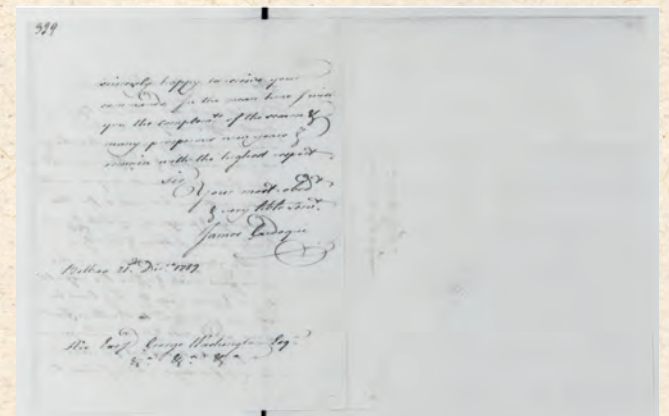 329
sincerely happy to receive your
commands. In the mean time I wish
you the compliments of the season &
many prosperous new years &
remain with the highest respect
Sir
Your most obed.t
& very hble serv.t
James Gardoqui
Bilbao 28.th Dec.re 1789
His Exc.y George Washington Esq.r
&.a &.a &.a